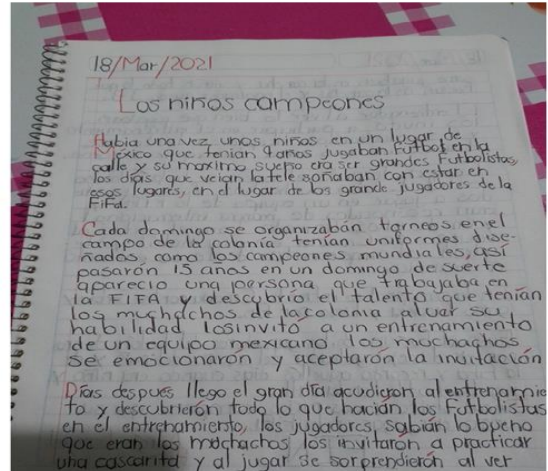 18/Mar/2021
Los niños campeones
Habia una vez unos niños en un lugar de
México que tenian 7 años jugaban futbol en la
calle y su maximo sueño era ser grandes futbolistas,
los días que veian la tele soñaban con estar en
esos lugares, en el lugar de los grande jugadores de la
Fifa.
Cada domingo se organizabán torneos en el
campo de la colonia tenían uniformes dise-
ñados, como los campeones mundiales, así
pasarón 15 años en un domingo de suerte
aparecio una persona que trabajaba en
la FIFA y descubrio el talento que tenían
los muchachos de la colonia al ver su
habilidad, los invitó a un entrenamiento
de un equipo mexicano los muchachos
se emocionarón y aceptarón la invitación
Días despues llego el gran día acudieron al entrenamie
to y descubrierón todo lo que hacian los futbolistas
en el entrenamiento, los jugadores sabían lo bueno
que eran los muchachos los invitaron a practicar
una cascarita y al jugar se sorprendierón al ver